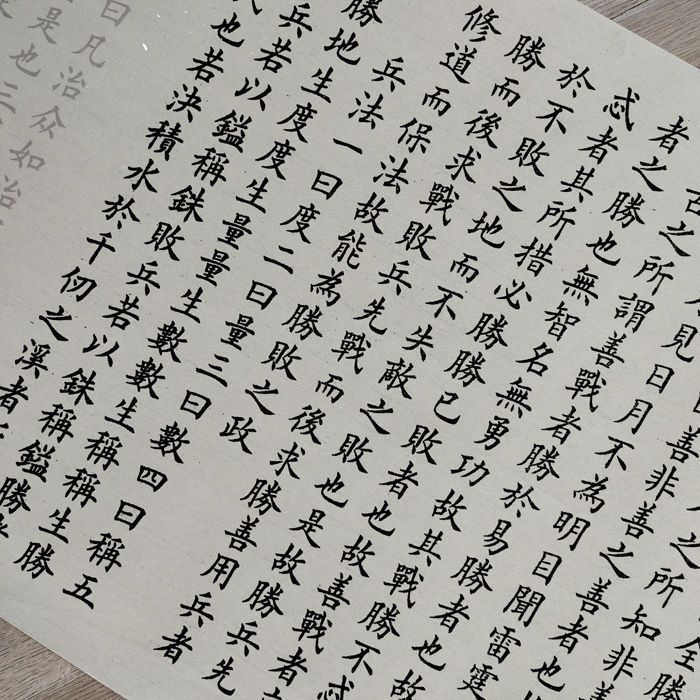 全勝
之所知非善
善非善之善者也
見日月不為明目聞雷霆
之所謂善戰者勝於易勝者也故
者之勝也無智名無勇功故其戰勝不忒
忒者其所措必勝勝已敗者也故善戰者
於不敗之地而不失敵之敗也是故勝兵先
勝而後求戰敗兵先戰而後求勝善用兵者
修道而保法故能為勝敗之政
兵法一曰度二曰量三曰數四曰稱五
勝地生度度生量量生數數生稱稱生勝
兵若以鎰稱銖敗兵若以銖稱鎰勝者
也若決積水於千仞之溪者
曰凡治众如治
是也三